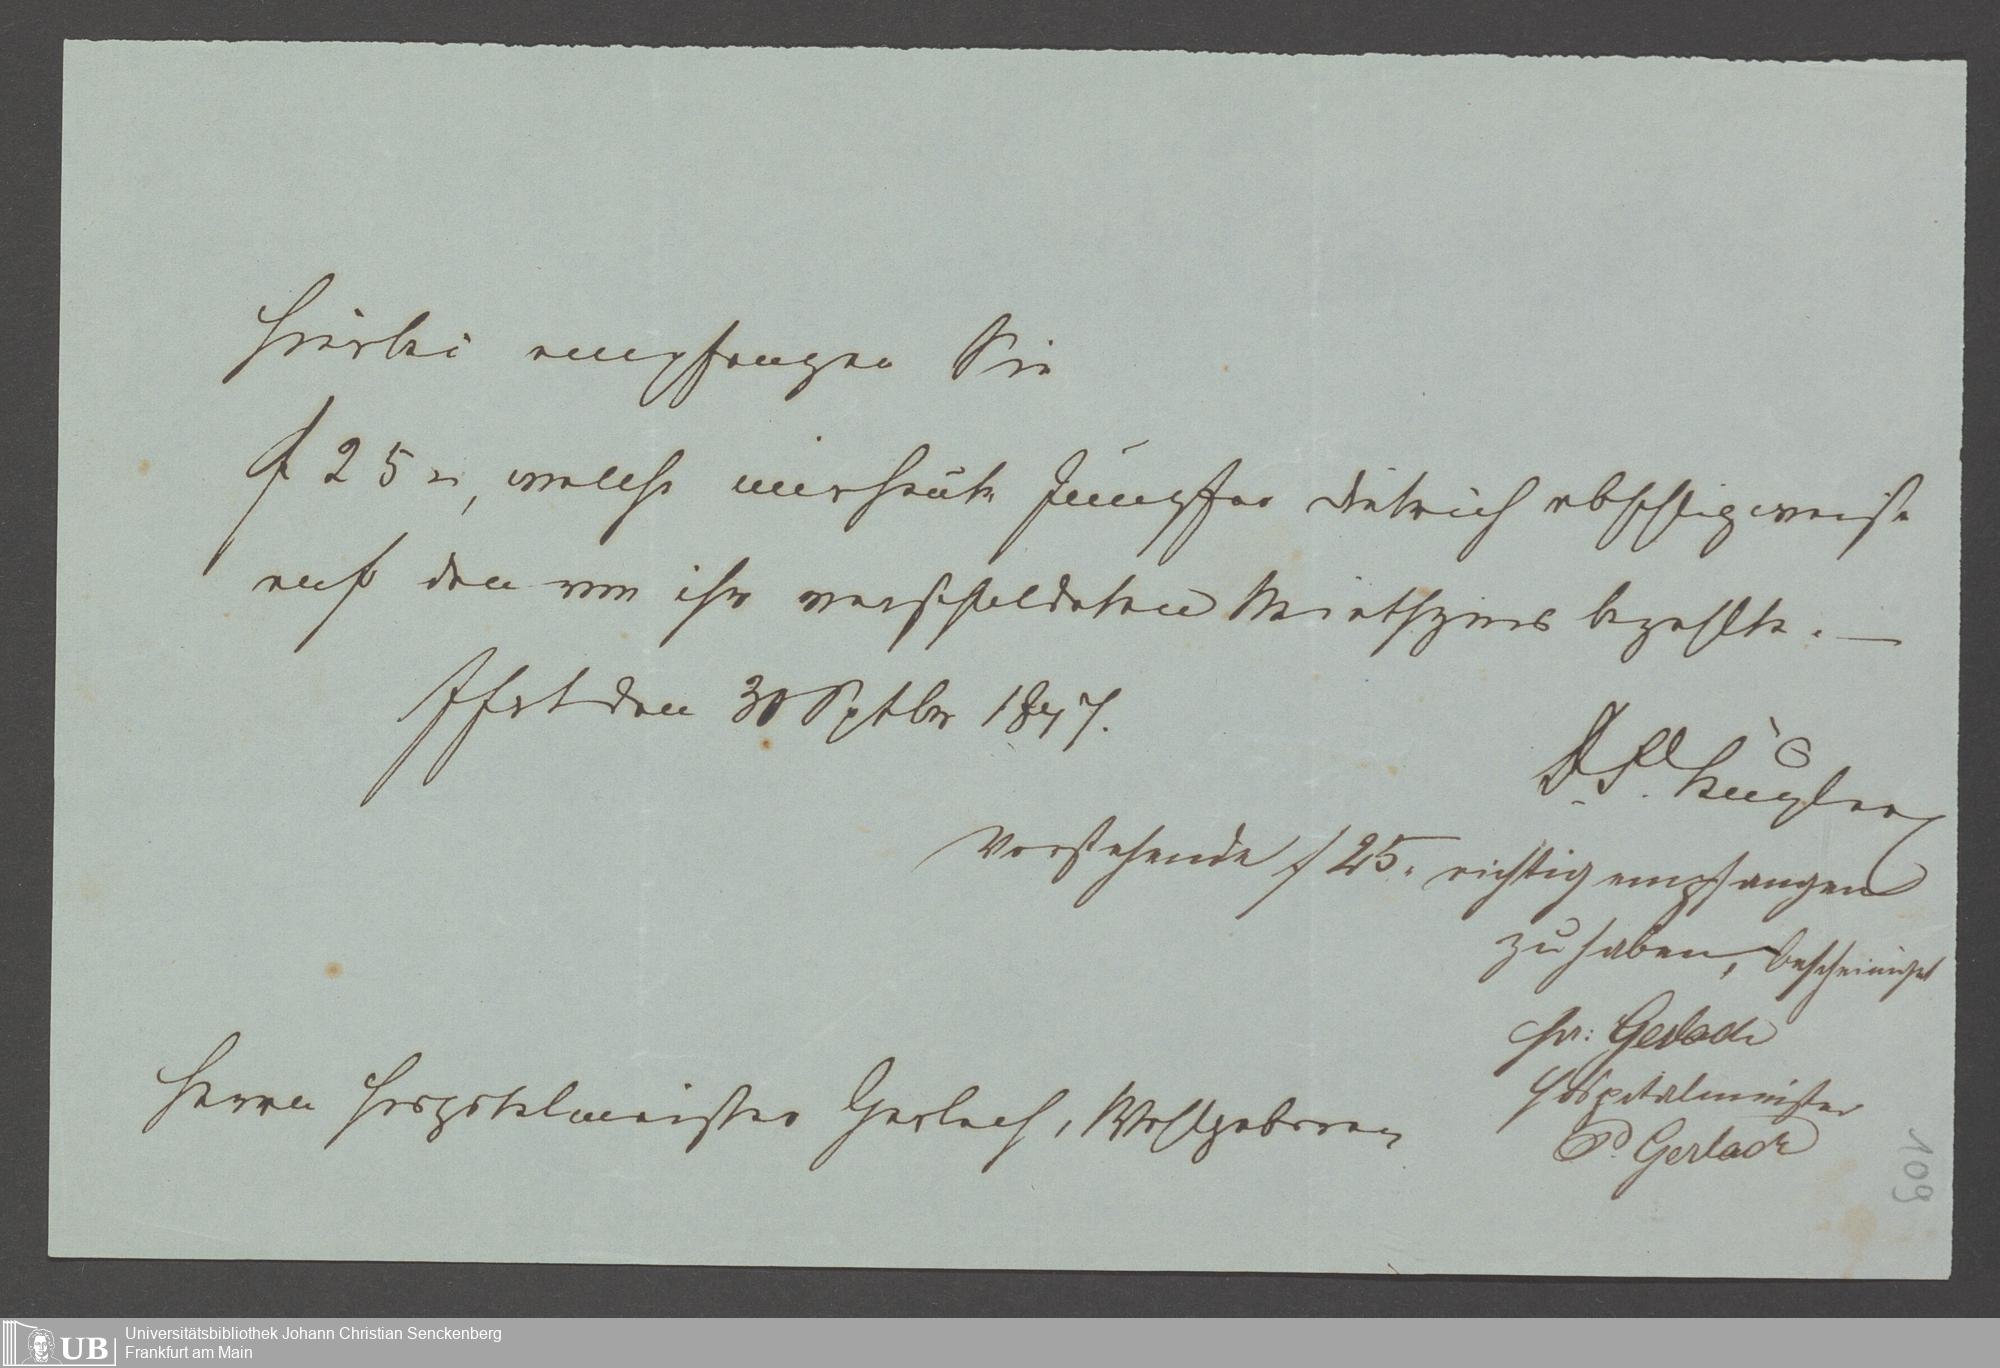 Hierbei empfangen Sie
f 25 –, welche mir heute Jungfer Dietrich abschlagsweise
auf den von ihr verschuldeten Miethzins bezahlte. —
Ffrt den 30 Sptbr 1847.
Kugler
Vorstehende f 25. richtig empfangen
zu haben, bescheinigt
Gerlach
Hospitalmeister
P. Gerlach
Herrn Hospitalmeister Gerlach, Wohlgeboren
109
UB Universitätsbibliothek Johann Christian Senckenberg
Frankfurt am Main